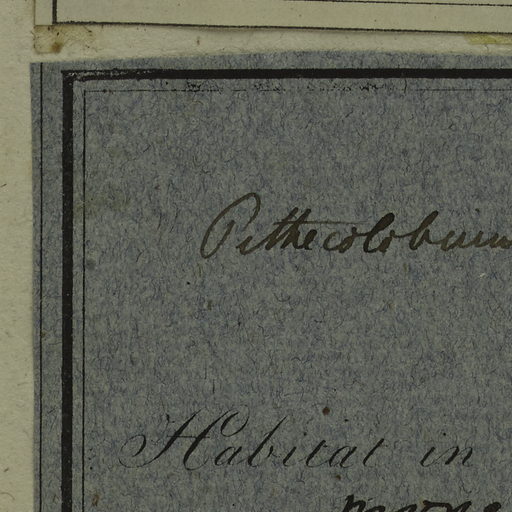 Pithecolobium
Habitat in